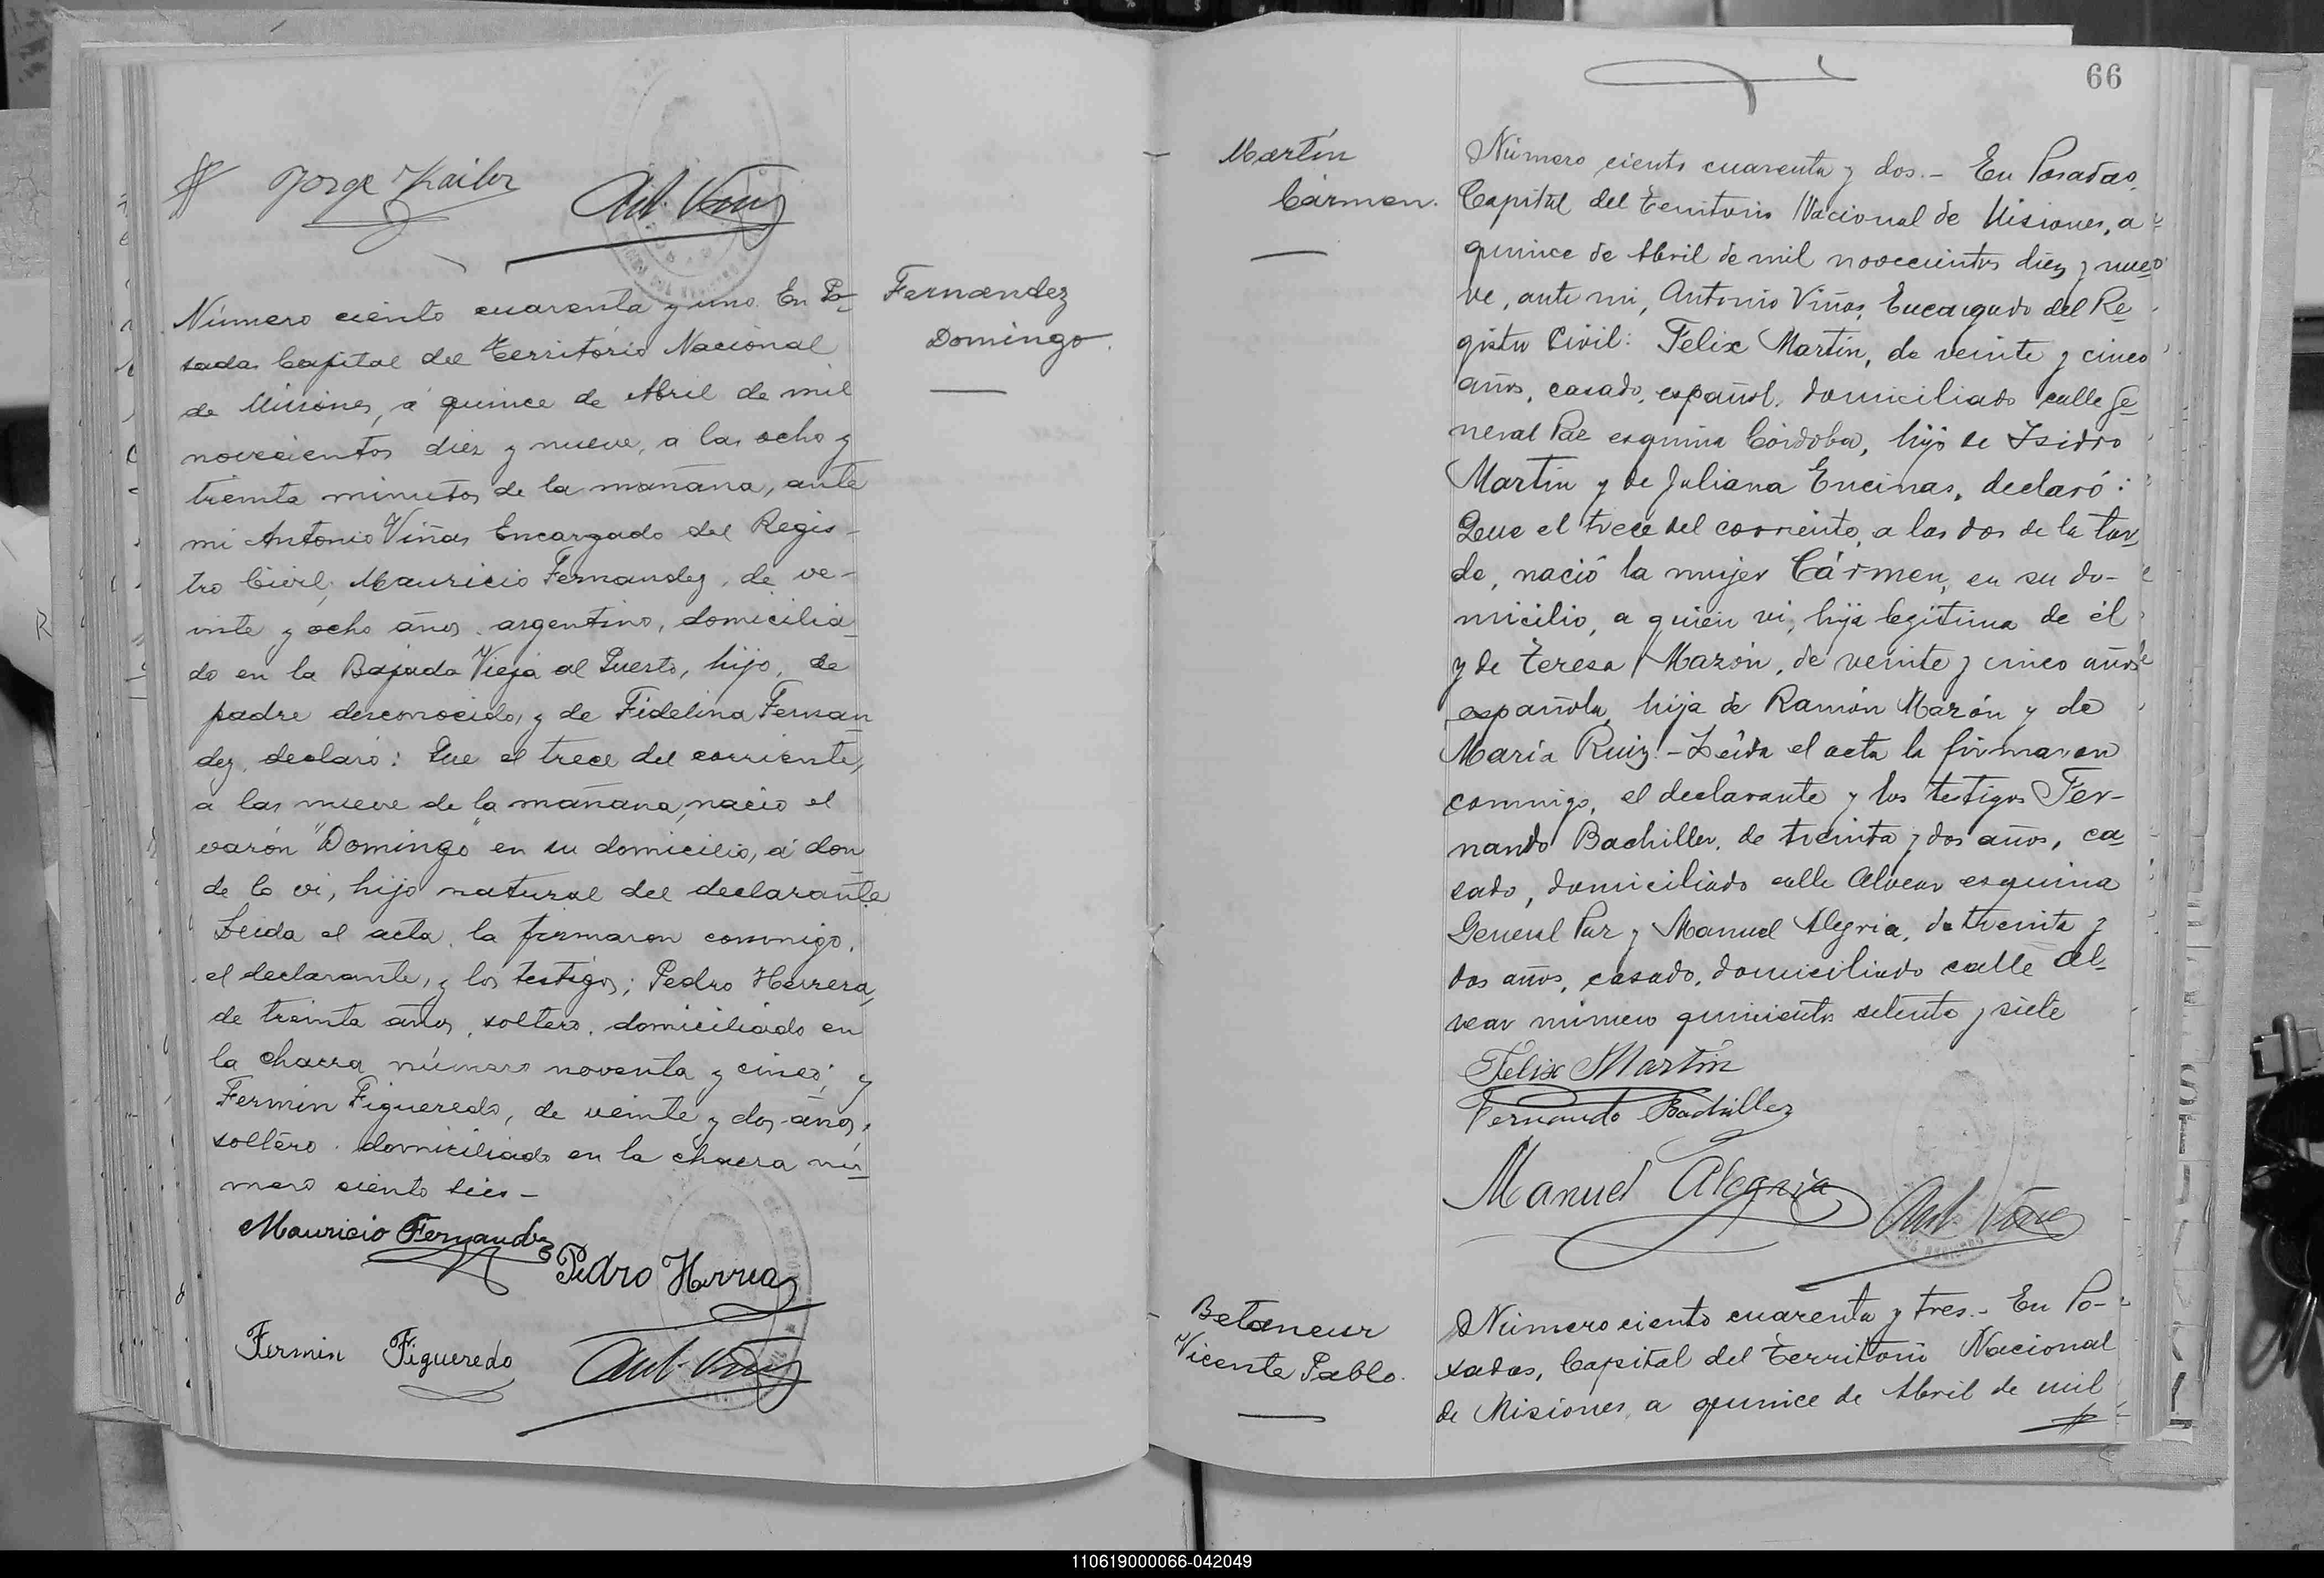 Jorge
Ant. Viñas
Número ciento cuarenta y uno. En Po-
sadas Capital del Território Nacional
de Misiones, á quince de Abril de mil
novecientos diez y nueve, a las ocho y
treinta minutos de la mañana, ante
mi Antonio Viñas Encargado del Regis-
tro Civil, Mauricio Fernandez, de ve-
inte y ocho años, argentino, domicilia-
do en la Bajada Vieja al Puerto, hijo, de
padre desconocido, y de Fidelina Fernan-
dez, declaró: Que el trece del corriente,
a las nueve de la mañana, nació el
varón "Domingo" en su domicilio, á don-
de lo vi, hijo natural del declarante
Leida el acta, la firmaron conmigo,
el declarante, y los testigos; Pedro Herrera,
de treinta años, soltero, domiciliado en
la chacra número noventa y cinco, y
Fermin Figueredo, de veinte y dos años,
soltero, domiciliado en la chacra nú-
mero ciento seis –
Mauricio Fernandez
Pedro Herrera
Fermin Figueredo
Ant. Viñas
Fernandez
Domingo.
66
Martín
Cármen.
Número ciento cuarenta y dos.- En Posadas,
Capital del Territorio Nacional de Misiones, a
quince de Abril de mil novecientos diez y nue-
ve, ante mi, Antonio Viñas, Encargado del Re-
gistro Civil: Felix Martín, de veinte y cinco
años, casado, español, domiciliado calle Ge-
neral Paz esquina Córdoba, hijo de Isidro
Martin y de Juliana Encinas, declaró:
Que el trece del corriente, a las dos de la tar-
de, nació la mujer Cármen, en su do-
micilio, a quien vi, hija legítima de él
y de Teresa Mazón, de veinte y cinco años
española, hija de Ramón Mazón y de
María Ruiz.- Leída el acta la firmaron
conmigo, el declarante y los testigos Fer-
nando Bachiller, de treinta y dos años, ca-
sado, domiciliado calle Alvear esquina
General Paz y Manuel Alegria, de treinta y
dos años, casado, domiciliado calle Al-
vear número quinientos setenta y siete
Felix Martin
Fernando Bachiller
Manuel Alegria
Ant. Viñas
Betancur
Vicente Pablo.
Número ciento cuarenta y tres.- En Po-
sadas, Capital del Territorio Nacional
de Misiones, a quince de Abril de mil
110619000066-042049